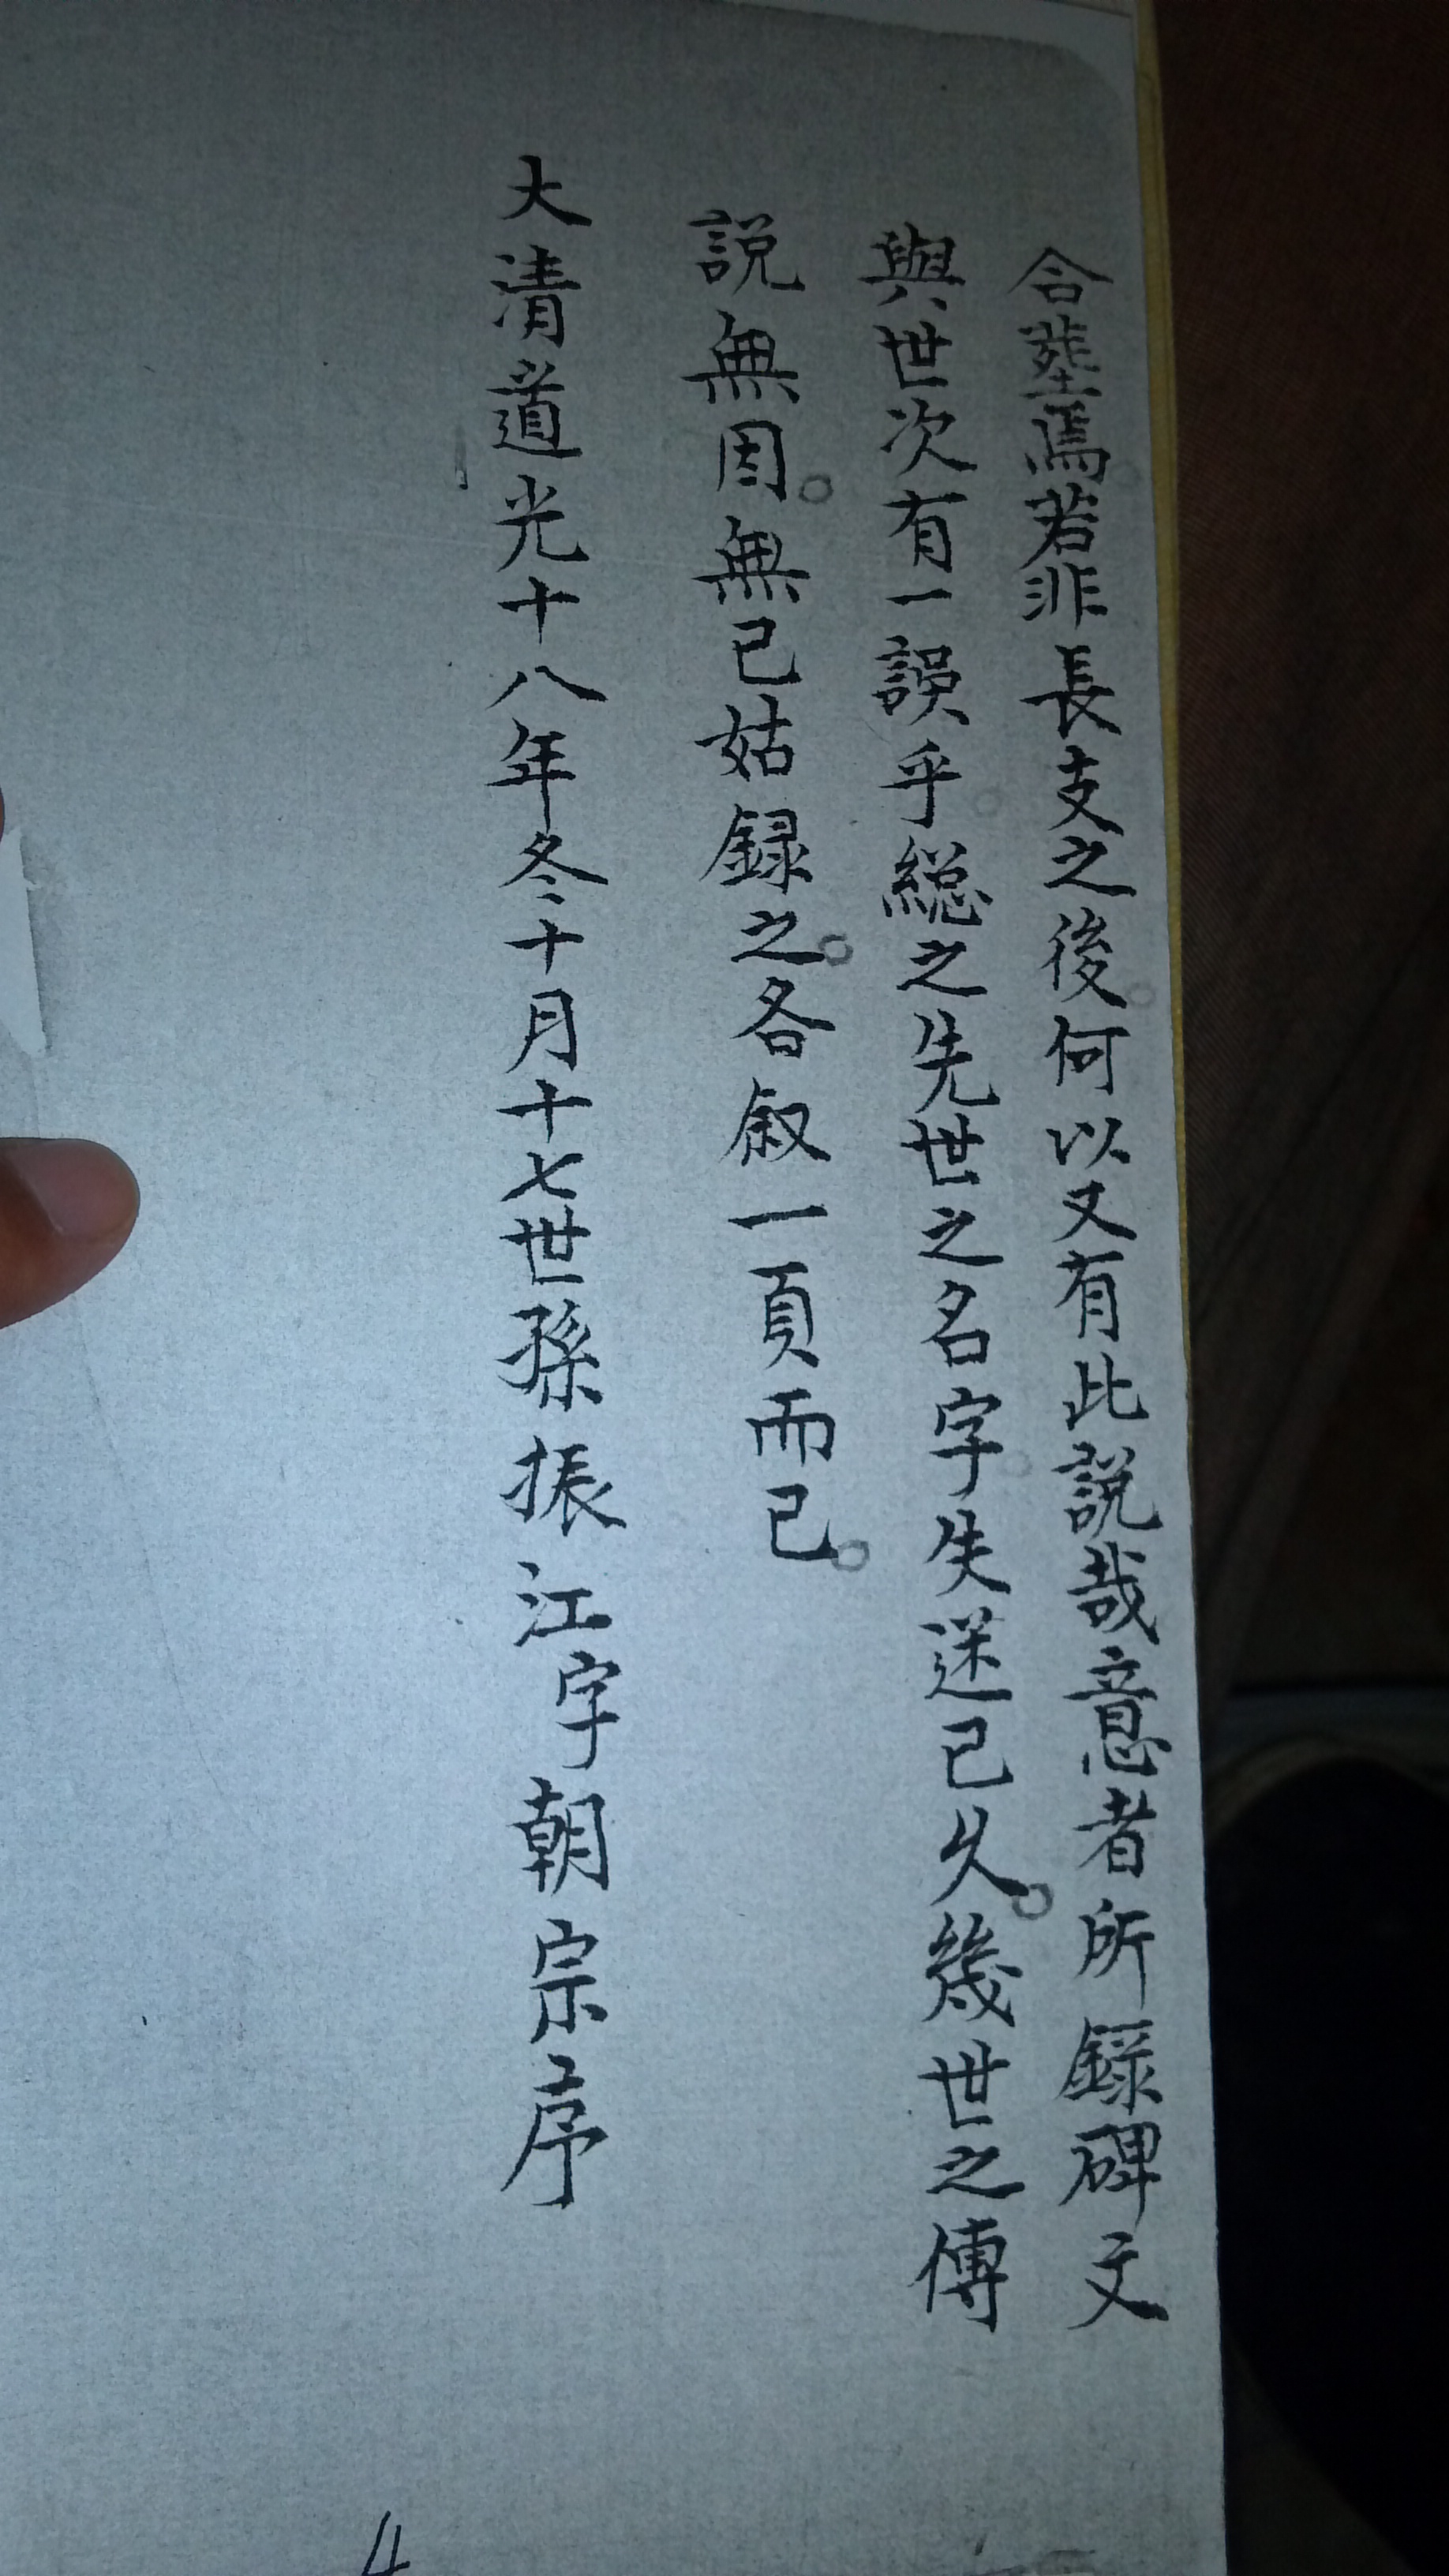 合塟焉若非長支之後何以又有此說哉意者所錄碑文
與世次有一誤乎総之先世之名字失迷已久。幾世之傳
說無因。無已姑録之。各叙一頁而已。
大清道光十八年冬十月十七世孫振江字朝宗序
4